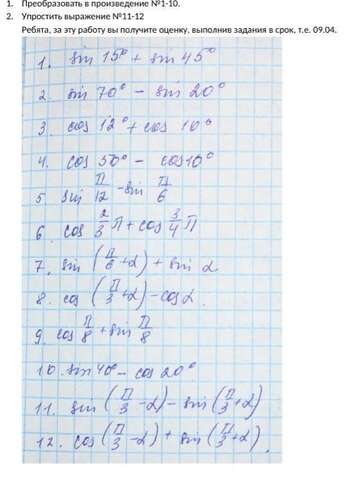 1. Преобразовать в произведение №1-10.
2. Упростить выражение №11-12
Ребята, за эту работу вы получите оценку, выполнив задания в срок, т.е. 09.04.
1. sin 15° + sin 45°
2. sin 70° − sin 20°
3. cos 12° + cos 10°
4. cos 50° − cos 10°
5. sin π/12 - sin π/6
6. cos 2/3 π + cos 3/4 π
7. sin (π/6 + α) + sin α
8. cos (π/3 + α) − cos α.
9. cos π/8 + sin π/8
10. sin 40° − cos 20°
11. sin (π/3 − α) − sin (π/3 + α)
12. cos (π/3 − α) + sin (π/3 + α).